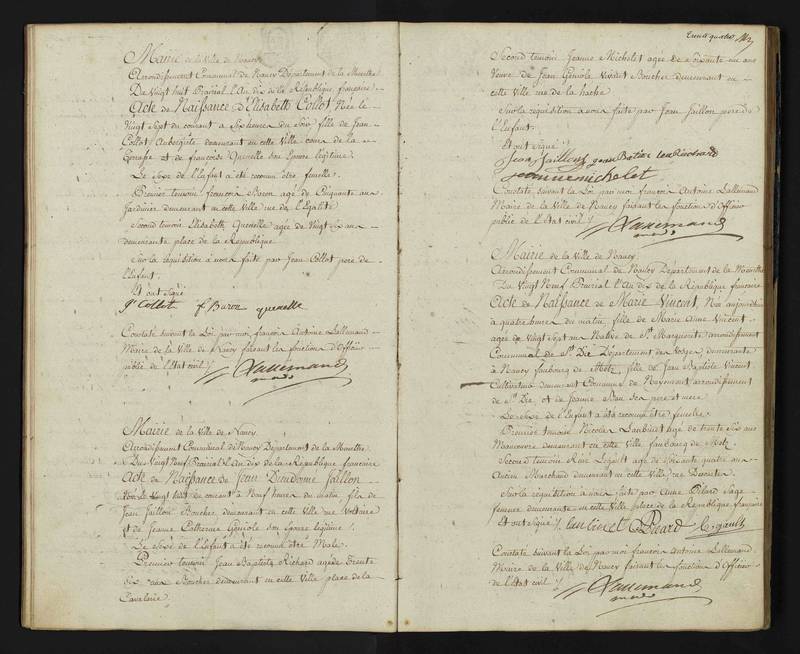 Mairie de la Ville de Nancy
Arrondissement Communal de Nancy Département de la Meurthe
Du Vingt huit Prairial l'An dix de la République francaise
Acte de Naissance D'Elisabeth Collot Née le
Vingt Sept du courant a Six heures du Soir, fille de Jean
Collot Aubergiste demeurant en cette Ville
et de francoise Quenelle son Epouse légitime.
Le Sexe de l'Enfant a été reconnu être femelle.
Premier temoin francois Baron agé de Cinquante ans
Jardinier demeurant en cette Ville rue de l'Egalité
Second temoin Elisabeth Quenelle agée de Vingt ans
demeurante place de la République
Sur la réquisition a nous faite par Jean Collot pere de
l'Enfant.
Et ont signé
Collot f Baron quenelle
Constaté Suivant la Loi par moi francois Antoine Lallemand
Maire de la Ville de Nancy faisant les fonctions d'Officier
public de l'Etat civil /.
Lallemand
Mairie de la Ville de Nancy.
Arrondissement Communal de Nancy Département de la Meurthe
Du Vingt Neuf Prairial l'An dix de la République francaise
Acte de Naissance de Jean Dieudonné Jaillon
Né le Vingt huit du courant a Neuf heures du matin, fils de
Jean Jaillon Boucher demeurant en cette Ville rue Voltaire
et de Jeanne Catherine Gusiole son Epouse légitime /.
Le Sexe de l'Enfant a été reconnu être Male.
Premier temoin Jean Baptiste Richard agé de Trente
Six ans Boucher demeurant en cette Ville place de la
Cavalerie.
Trente quatre
Second temoin Jeanne Micholet agée de Soixante un ans
Veuve de Jean Gusiole Vivant Boucher demeurant en
cette Ville rue de la hache
Sur la réquisition a nous faite par Jean Jaillon pere de
l'Enfant.
Et ont signé
Jean Jaillon Jean Batiste Richard
jeanne micholet
Constaté Suivant la Loi par moi francois Antoine Lallemand
Maire de la Ville de Nancy faisant les fonctions d'Officier
public de l'Etat civil /.
Lallemand
Mairie de la Ville de Nancy.
Arrondissement Communal de Nancy Département de la Meurthe
Du Vingt Neuf Prairial l'An dix de la République francaise
Acte de Naissance de Marie Vincent, Née aujourdhui
a quatre heures du matin, fille de Marie Anne Vincent
agée de Vingt Sept ans Native de Ste Marguerite arrondissement
Communal de St Dié Département des Vosges demeurante
à Nancy faubourg de Metz, fille de Jean Baptiste Vincent
Cultivateur demeurant Commune de Nayemont arrondissement
de St Dié et de Jeanne ses pere et mere.
Le Sexe de l'Enfant a été reconnu être femelle.
Premier temoin Nicolas Laubinet agé de trente Six ans
Manoeuvre demeurant en cette Ville faubourg de Metz.
Second temoin René Legault agé de Soixante quatre ans
Ancien Marchand demeurant en cette Ville rue
Sur la réquisition a nous faite par Anne Pélard Sage
femme demeurante en cette Ville place de la République francaise
Et ont signé /.
Constaté Suivant la Loi par moi francois Antoine Lallemand
Maire de la Ville de Nancy faisant les fonctions d'Officier
de l'Etat civil /.
Lallemand